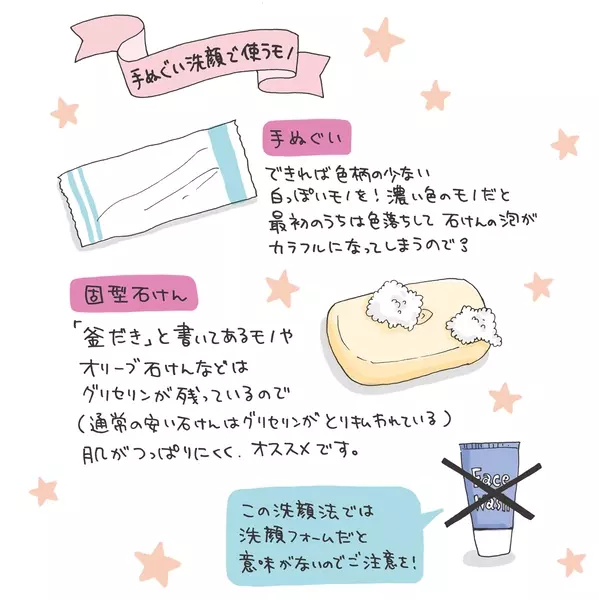 手ぬぐい洗顔で使うモノ
手ぬぐい
できれば色柄の少ない
白っぽいモノを!濃い色のモノだと
最初のうちは色落ちして石けんの泡が
カラフルになってしまうので?
固型石けん
「釜だき」と書いてあるモノや
オリーブ石けんなどは
グリセリンが残っているので
(通常の安い石けんはグリセリンがとりはらわれている)
肌がつっぱりにくく、オススメです。
Face
Wash
この洗顔法では
洗顔フォームだと
意味がないのでご注意を!